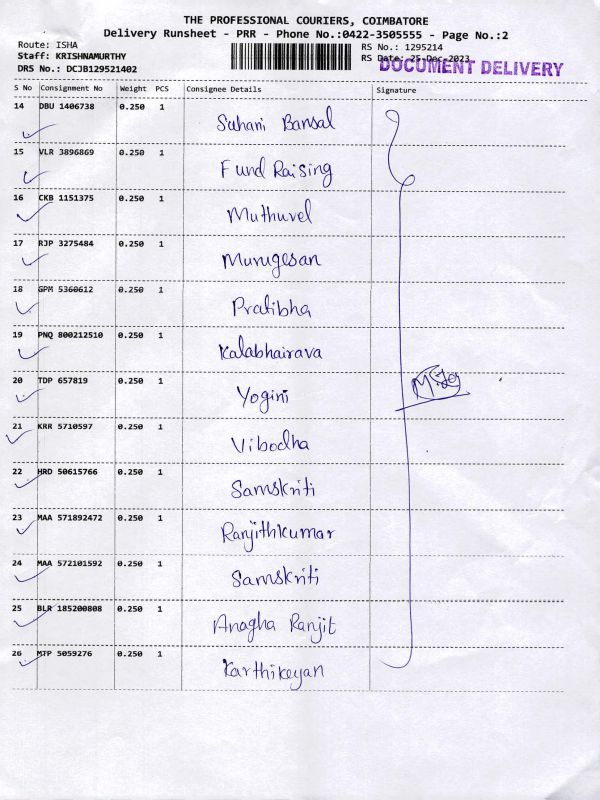 THE PROFESSIONAL COURIERS, COIMBATORE
Delivery Runsheet - PRR - Phone No.:0422-3505555 - Page No.:2
Route: ISHA
RS No.: 1295214
Staff: KRISHNAMURTHY
RS Date: 25-Dec-2023
DRS No.: DCJB129521402
DOCUMENT DELIVERY
S No Consignment No Weight PCS Consignee Details Signature
14 DBU 1406738 0.250 1 Suhani Bansal
15 VLR 3896869 0.250 1 Fund Raising
16 CKB 1151375 0.250 1 Muthuvel
17 RJP 3275484 0.250 1 Murugesan
18 GPM 5360612 0.250 1 Pratibha
19 PNQ 800212510 0.250 1 Kalabhairava
20 TDP 657819 0.250 1 Yogini
21 KRR 5710597 0.250 1 Vibodha
22 HRD 50615766 0.250 1 Samskriti
23 MAA 571892472 0.250 1 Ranjithkumar
24 MAA 572101592 0.250 1 Samskriti
25 BLR 185200808 0.250 1 Anagha Ranjit
26 MTP 5059276 0.250 1 Karthikeyan